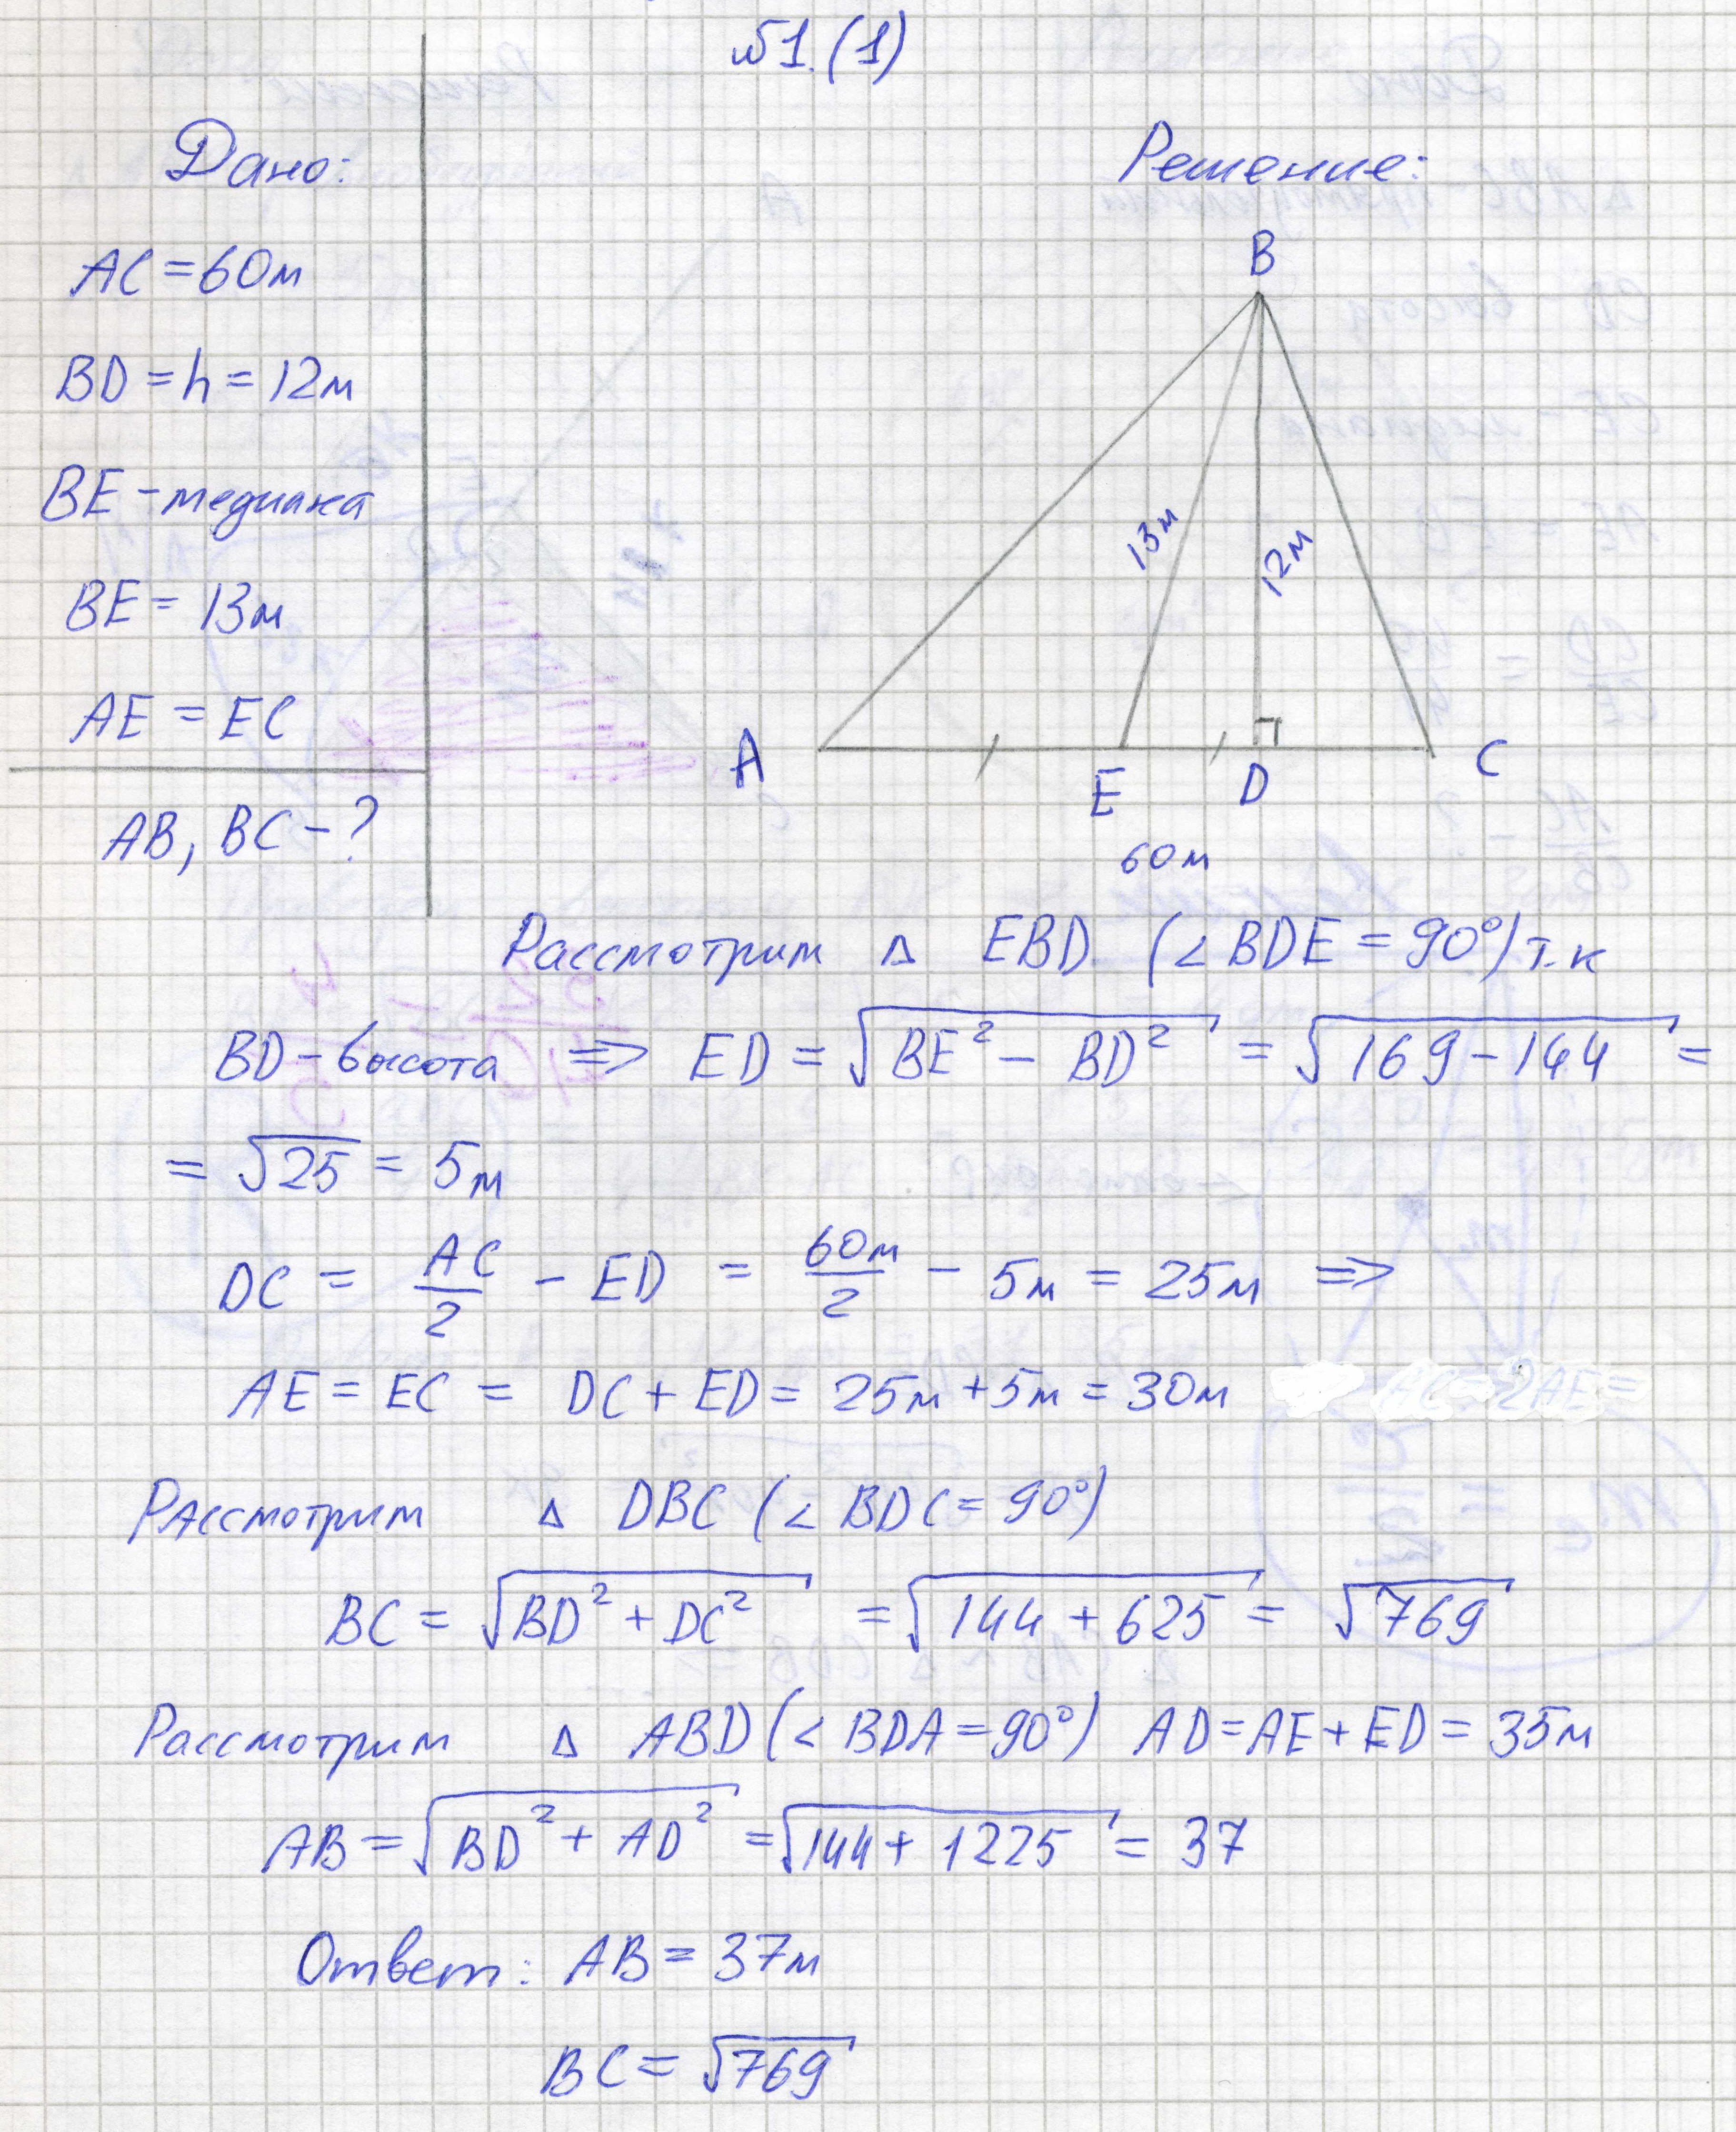 №1.(1)
Дано:
Решение:
AC = 60м
BD = h = 12м
BE - медиана
BE = 13м
AE = EC
AB, BC - ?
B
13м
12м
A
E
D
C
60м
Рассмотрим Δ EBD (∠ BDE = 90°) т.к
BD - высота => ED = √(BE² - BD²) = √(169 - 144) =
= √25 = 5м
DC = AC/2 - ED = 60м/2 - 5м = 25м =>
AE = EC = DC + ED = 25м + 5м = 30м
Рассмотрим Δ DBC (∠ BDC = 90°)
BC = √(BD² + DC²) = √(144 + 625) = √769
Рассмотрим Δ ABD (∠ BDA = 90°) AD = AE + ED = 35м
AB = √(BD² + AD²) = √(144 + 1225) = 37
Ответ: AB = 37м
BC = √769